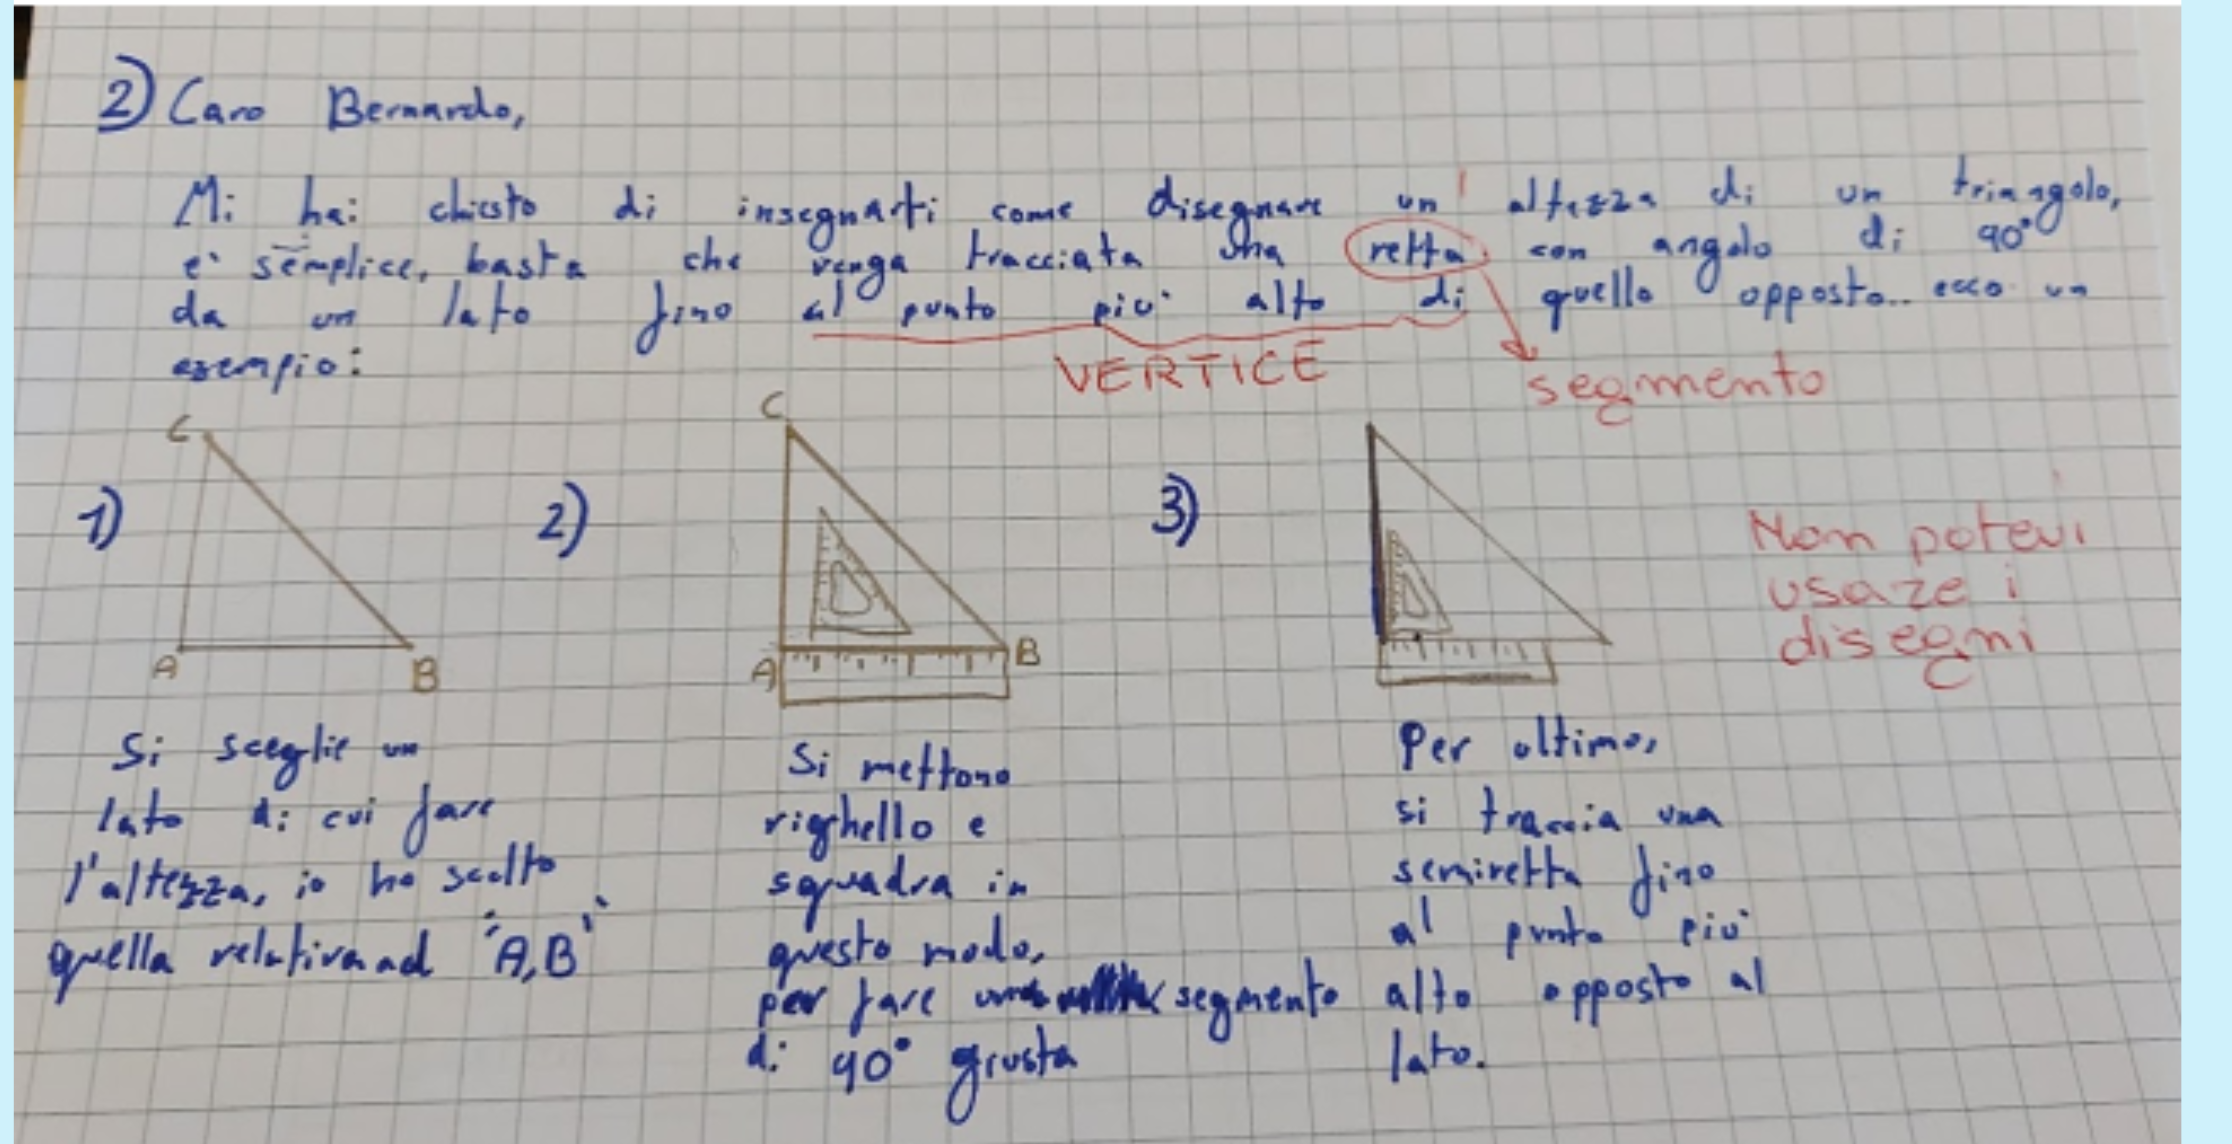 2) Caro Bernardo,
Mi hai chiesto di insegnarti come disegnare un' altezza di un triangolo,
e' semplice, basta che venga tracciata una retta con angolo di 90°
da un lato fino al punto piu' alto di quello opposto... ecco un
esempio:
VERTICE
segmento
1)
C
A
B
2)
C
A
B
3)
Non potevi
usare i
disegni
Si sceglie un
lato di cui fare
l'altezza, io ho scelto
quella relativa ad "A,B"
Si mettono
righello e
squadra in
questo modo,
per fare segmento
di 90° giusta
Per ultimo,
si traccia una
semiretta fino
al punto piu'
alto opposto al
lato.